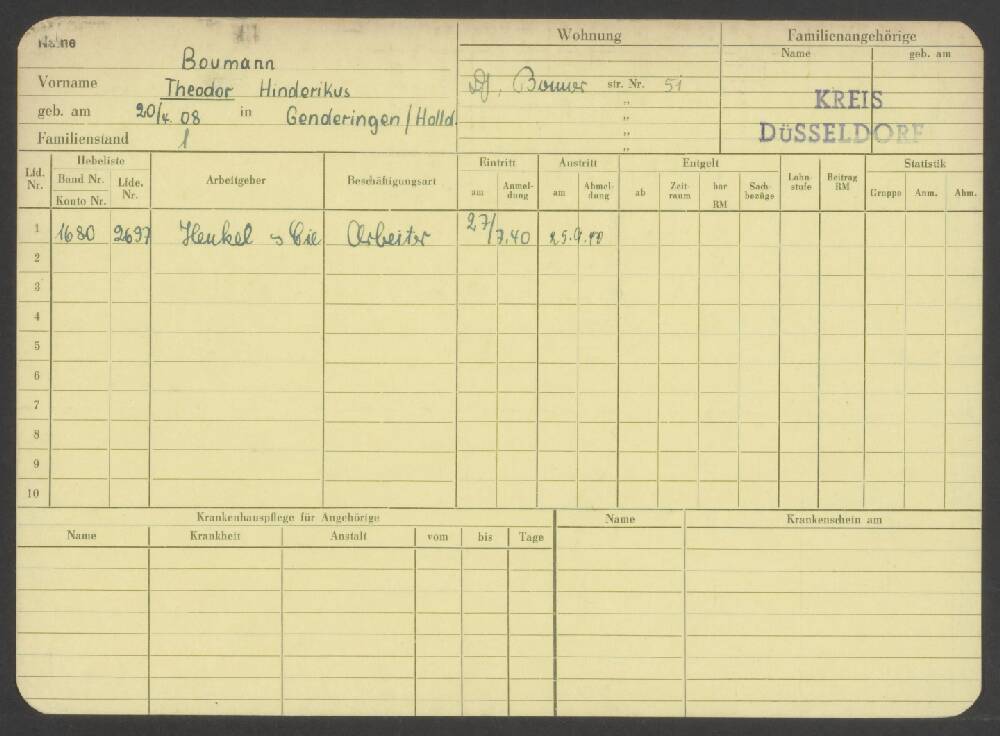 Name Boumann
Vorname Theodor Hinderikus
geb. am 20/4. 08 in Genderingen/Holld.
Familienstand 1
Wohnung
Df, Bonner str. Nr. 51
"
"
"
"
Familienangehörige
Name geb. am
KREIS
DÜSSELDORF
Lfd. Nr. Hebeliste Band Nr. Konto Nr. Lfde. Nr. Arbeitgeber Beschäftigungsart Eintritt am Anmeldung Austritt am Abmeldung Entgelt ab Zeitraum bar RM Sachbezüge Lohnstufe Beitrag RM Statistik Gruppe Anm. Abm.
1 1680 2697 Henkel & Cie Arbeiter 27/7.40 25.9.40
2
3
4
5
6
7
8
9
10
Krankenhauspflege für Angehörige
Name Krankheit Anstalt vom bis Tage
Name Krankenschein am